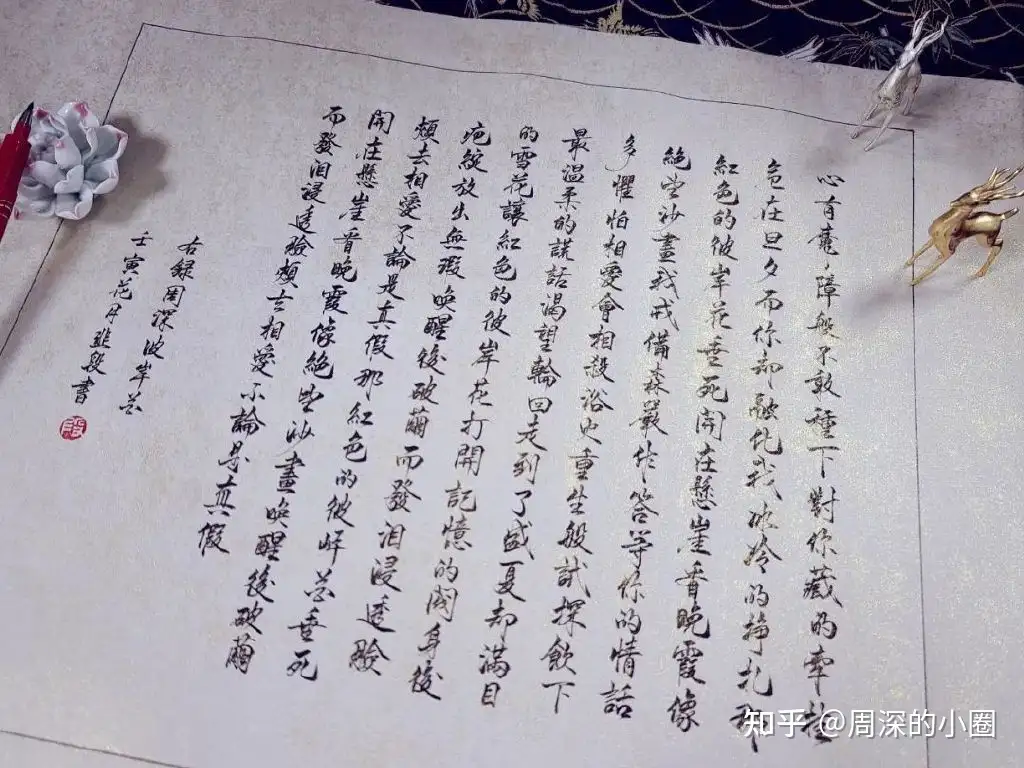 心有障般不敢種下對你藏的牽掛
危在旦夕而你却融化我冰冷的掙扎那
紅色的彼岸花垂死開在懸崖昏晚霞像
絕世沙畫我戒備森嚴作答等你的情話
多懼怕相愛會相殺浴火重生般試探飲下
最溫柔的謊話渴望輪回走到了盛夏却滿目
的雪花讓紅色的彼岸花打開記憶的閥身後
疤綻放出無瑕喚醒後破繭而發泪浸透臉
頰去相愛不論是真假那紅色的彼岸花垂死
開在懸崖昏晚霞像絕世沙畫喚醒後破繭
而發泪浸透臉頰去相愛不論是真假
右錄周深彼岸花
壬寅花月段書
段
知乎 @周深的小圈